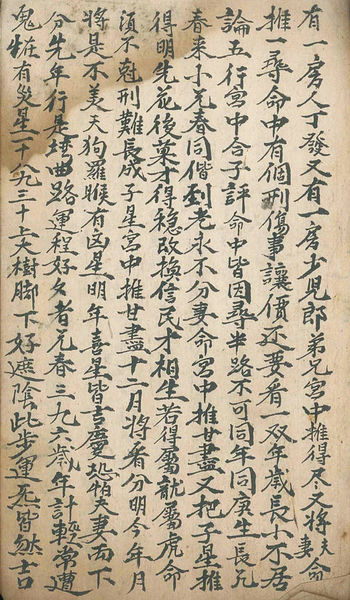 有一房人丁發又有一房少兒郎弟兄宮中推得尽又將夫妻命
推一尋命中有個刑傷事讓價还要看一双年歲長小不居
論五行宮中合子評命中皆因尋半路不可同年同庚生長兄
春來小兄春同偕到老永不分妻命宮中推甘盡又把子星推
得明先花後菓才得穩改換信民才相生若得屬龍屬虎命
須不尅刑難長成子星宮中推甘盡十二月將看分明今年月
將是不美天狗羅睺有凶星明年喜星皆吉慶恐怕夫妻両下
分先年行是埼曲路運程好久者元春三九六歲年計較常遭
鬼魀有災星二十八九三十上大樹脚下好遮陰此步運炁皆然吉